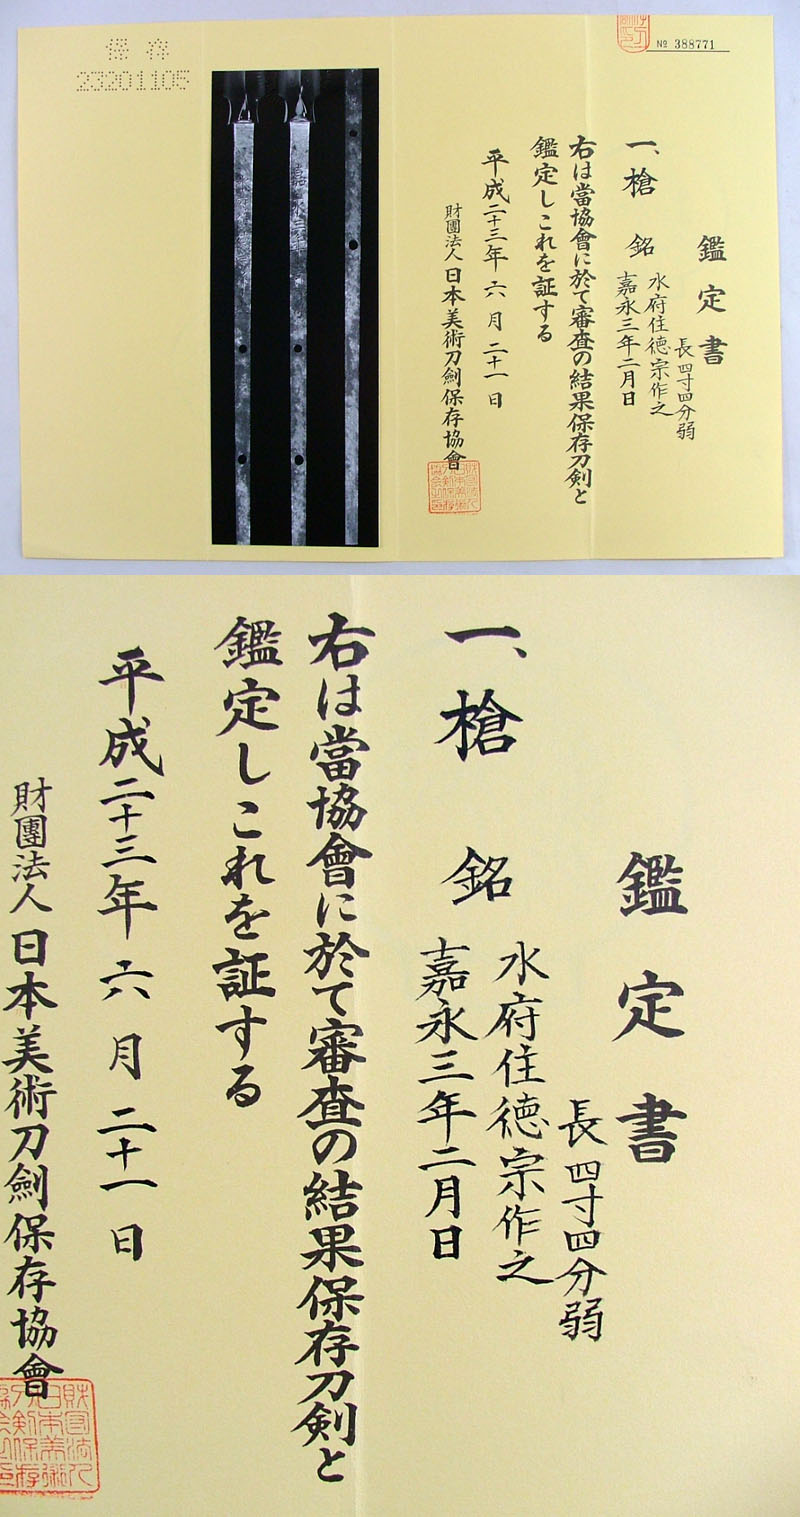 保存
23201105
No 388771
鑑定書
一、槍 銘
長四寸四分弱
水府住徳宗作之
嘉永三年二月日
右は當協會に於て審査の結果保存刀剣と
鑑定しこれを証する
平成二十三年六月二十一日
財團法人日本美術刀劍保存協會
嘉永三年
鑑定書
長四寸四分弱
一、槍 銘
水府住徳宗作之
嘉永三年二月日
右は當協會に於て審査の結果保存刀剣と
鑑定しこれを証する
平成二十三年六月二十一日
財團法人日本美術刀劍保存協會